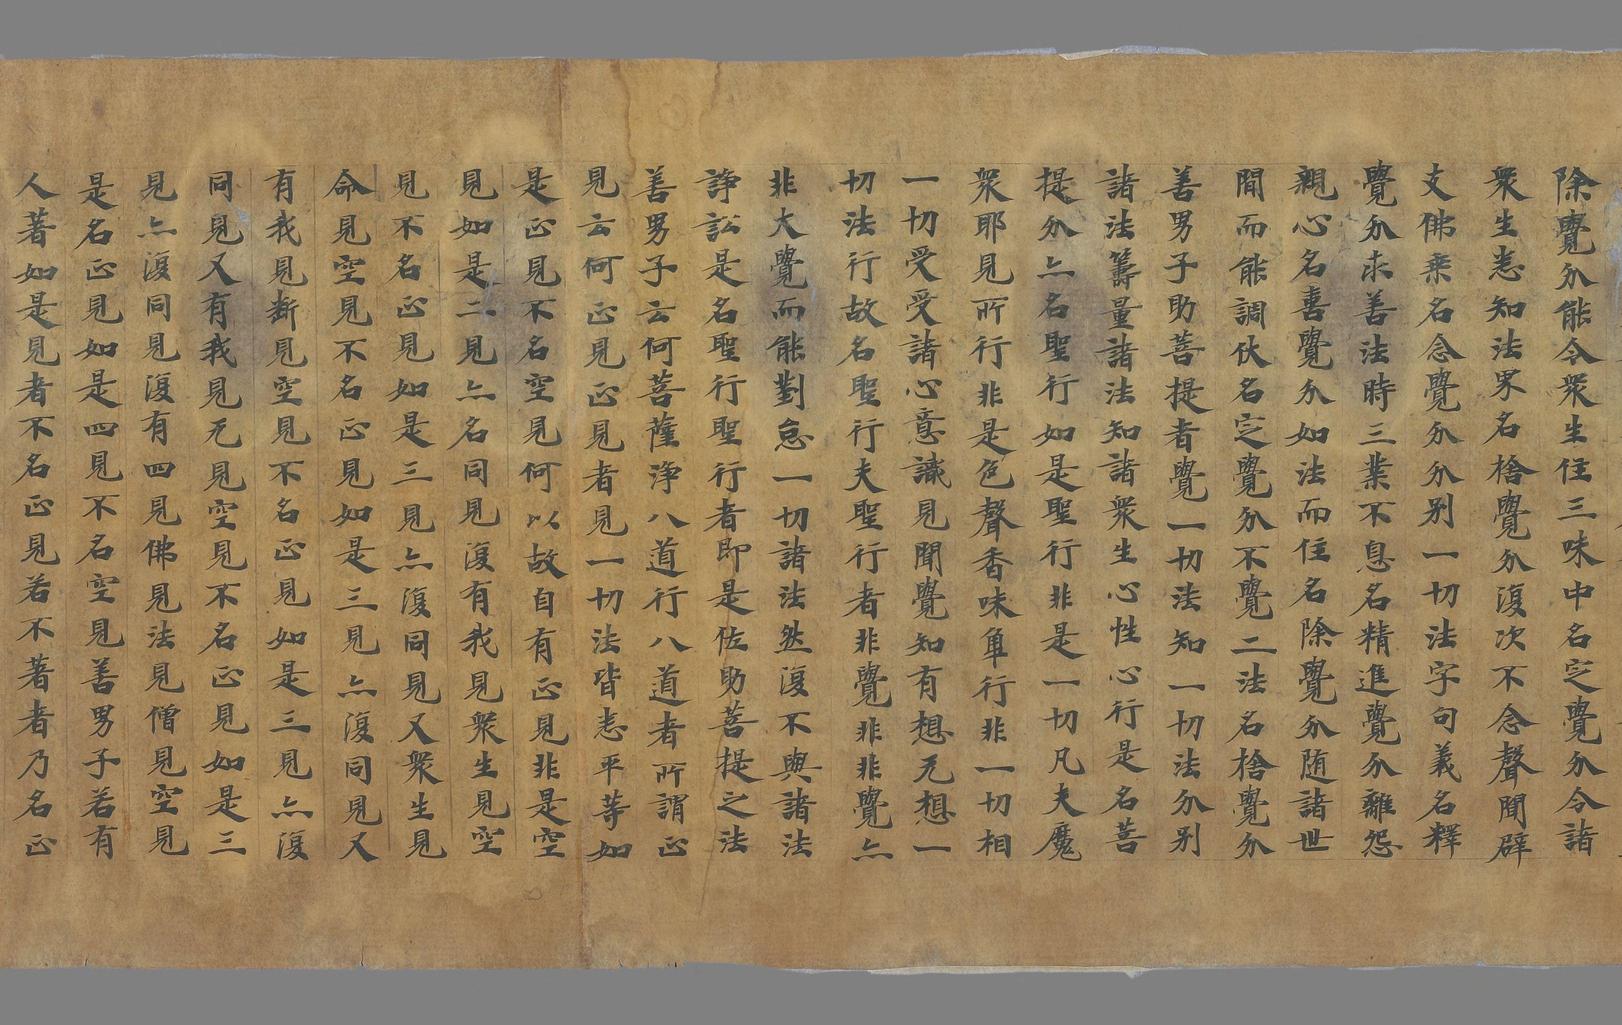 除覺分能令衆生住三昧中名定覺分令諸
衆生悉知法界名捨覺分復次不念聲聞辟
支佛乘名念覺分分別一切法字句義名釋
覺分求善法時三業不息名精進覺分離怨
親心名喜覺分如法而住名除覺分随諸世
間而能調伏名定覺分不覺二法名捨覺分
善男子助菩提者覺一切法知一切法分别
諸法籌量諸法知諸衆生心性心行是名菩
提分亦名聖行如是聖行非是一切凡夫魔
衆耶見所行非是色聲香味觸行非一切相
一切受受諸心意識見聞覺知有想无想一
切法行故名聖行夫聖行者非覺非非覺亦
非大覺而能對怠一切諸法然復不與諸法
諍訟是名聖行聖行者即是佐助菩提之法
善男子云何菩薩淨八道行八道者所謂正
見云何正見正見者見一切法皆悉平等如
是正見不名空見何以故自有正見非是空
見如是二見亦名同見復有我見衆生見空
見不名正見如是三見亦復同見又衆生見
命見空見不名正見如是三見亦復同見又
有我見斷見空見不名正見如是三見亦復
同見又有我見无見空見不名正見如是三
見亦復同見復有四見佛見法見僧見空見
是名正見如是四見不名空見善男子若有
人著如是見者不名正見若不著者乃名正